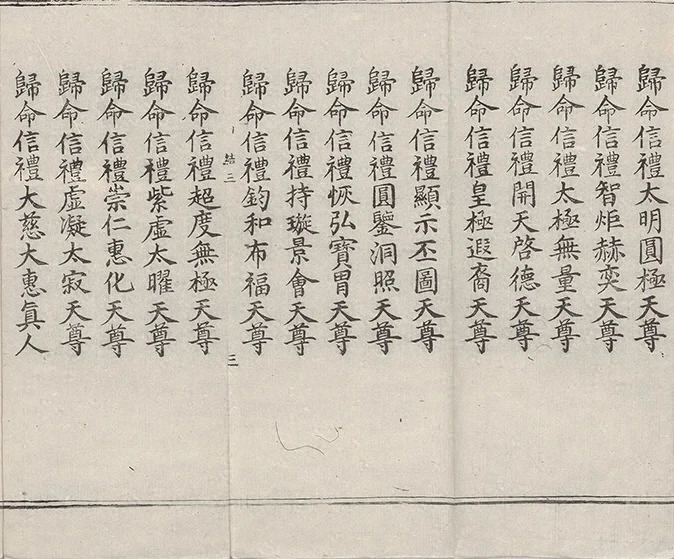 歸命信禮太明圓極天尊
歸命信禮智炬赫奕天尊
歸命信禮太極無量天尊
歸命信禮開天啓德天尊
歸命信禮皇極遐裔天尊
歸命信禮顯示丕圖天尊
歸命信禮圓鑒洞照天尊
歸命信禮恢弘寶胃天尊
歸命信禮持璇景會天尊
歸命信禮鈞和布福天尊
結三
三
歸命信禮超度無極天尊
歸命信禮紫虛太曜天尊
歸命信禮崇仁惠化天尊
歸命信禮虛凝太寂天尊
歸命信禮大慈大惠眞人